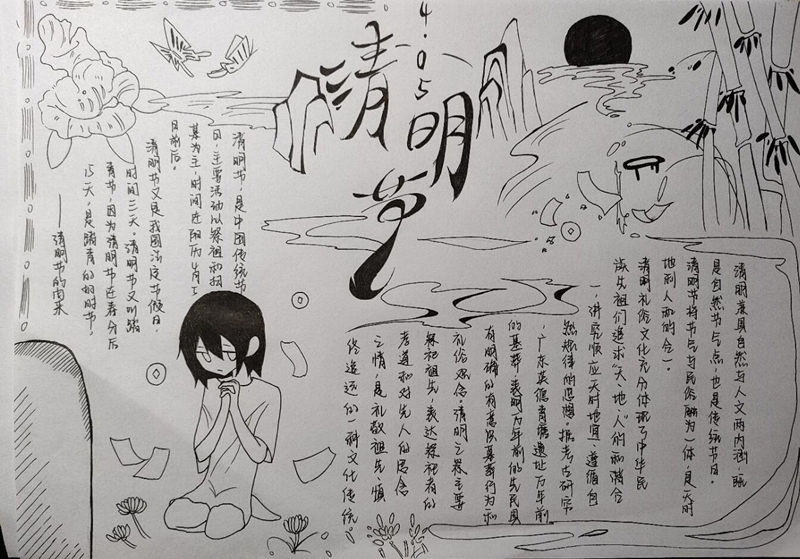 4.05
清明节
清明节，是中国传统节
日，主要活动以祭祖和扫
墓为主，时间在阳历4月5
日前后。
清明节又是我国法定节假日，
时间三天。清明节又叫踏
青节，因为清明节在春分后
15天，是踏青的好时节，
——清明节的由来
清明兼具自然与人文两内涵，既
是自然节气点，也是传统节日。
清明节将节气与民俗融为一体，是天时
地利人和的合一。
清明礼俗文化充分体现了中华民
族先祖们追求“天、地、人”的和谐合
一，讲究顺应天时地宜、遵循自
然规律的思想。据考古研究
，广东英德青塘遗址万年前
的墓葬，表明万年前的先民具
有明确的有意识墓葬行为和
礼俗观念清明之祭主要
祭祀祖先，表达祭祀者的
孝道和对先人的思念
之情，是礼敬祖先慎
终追远的一种文化传统。